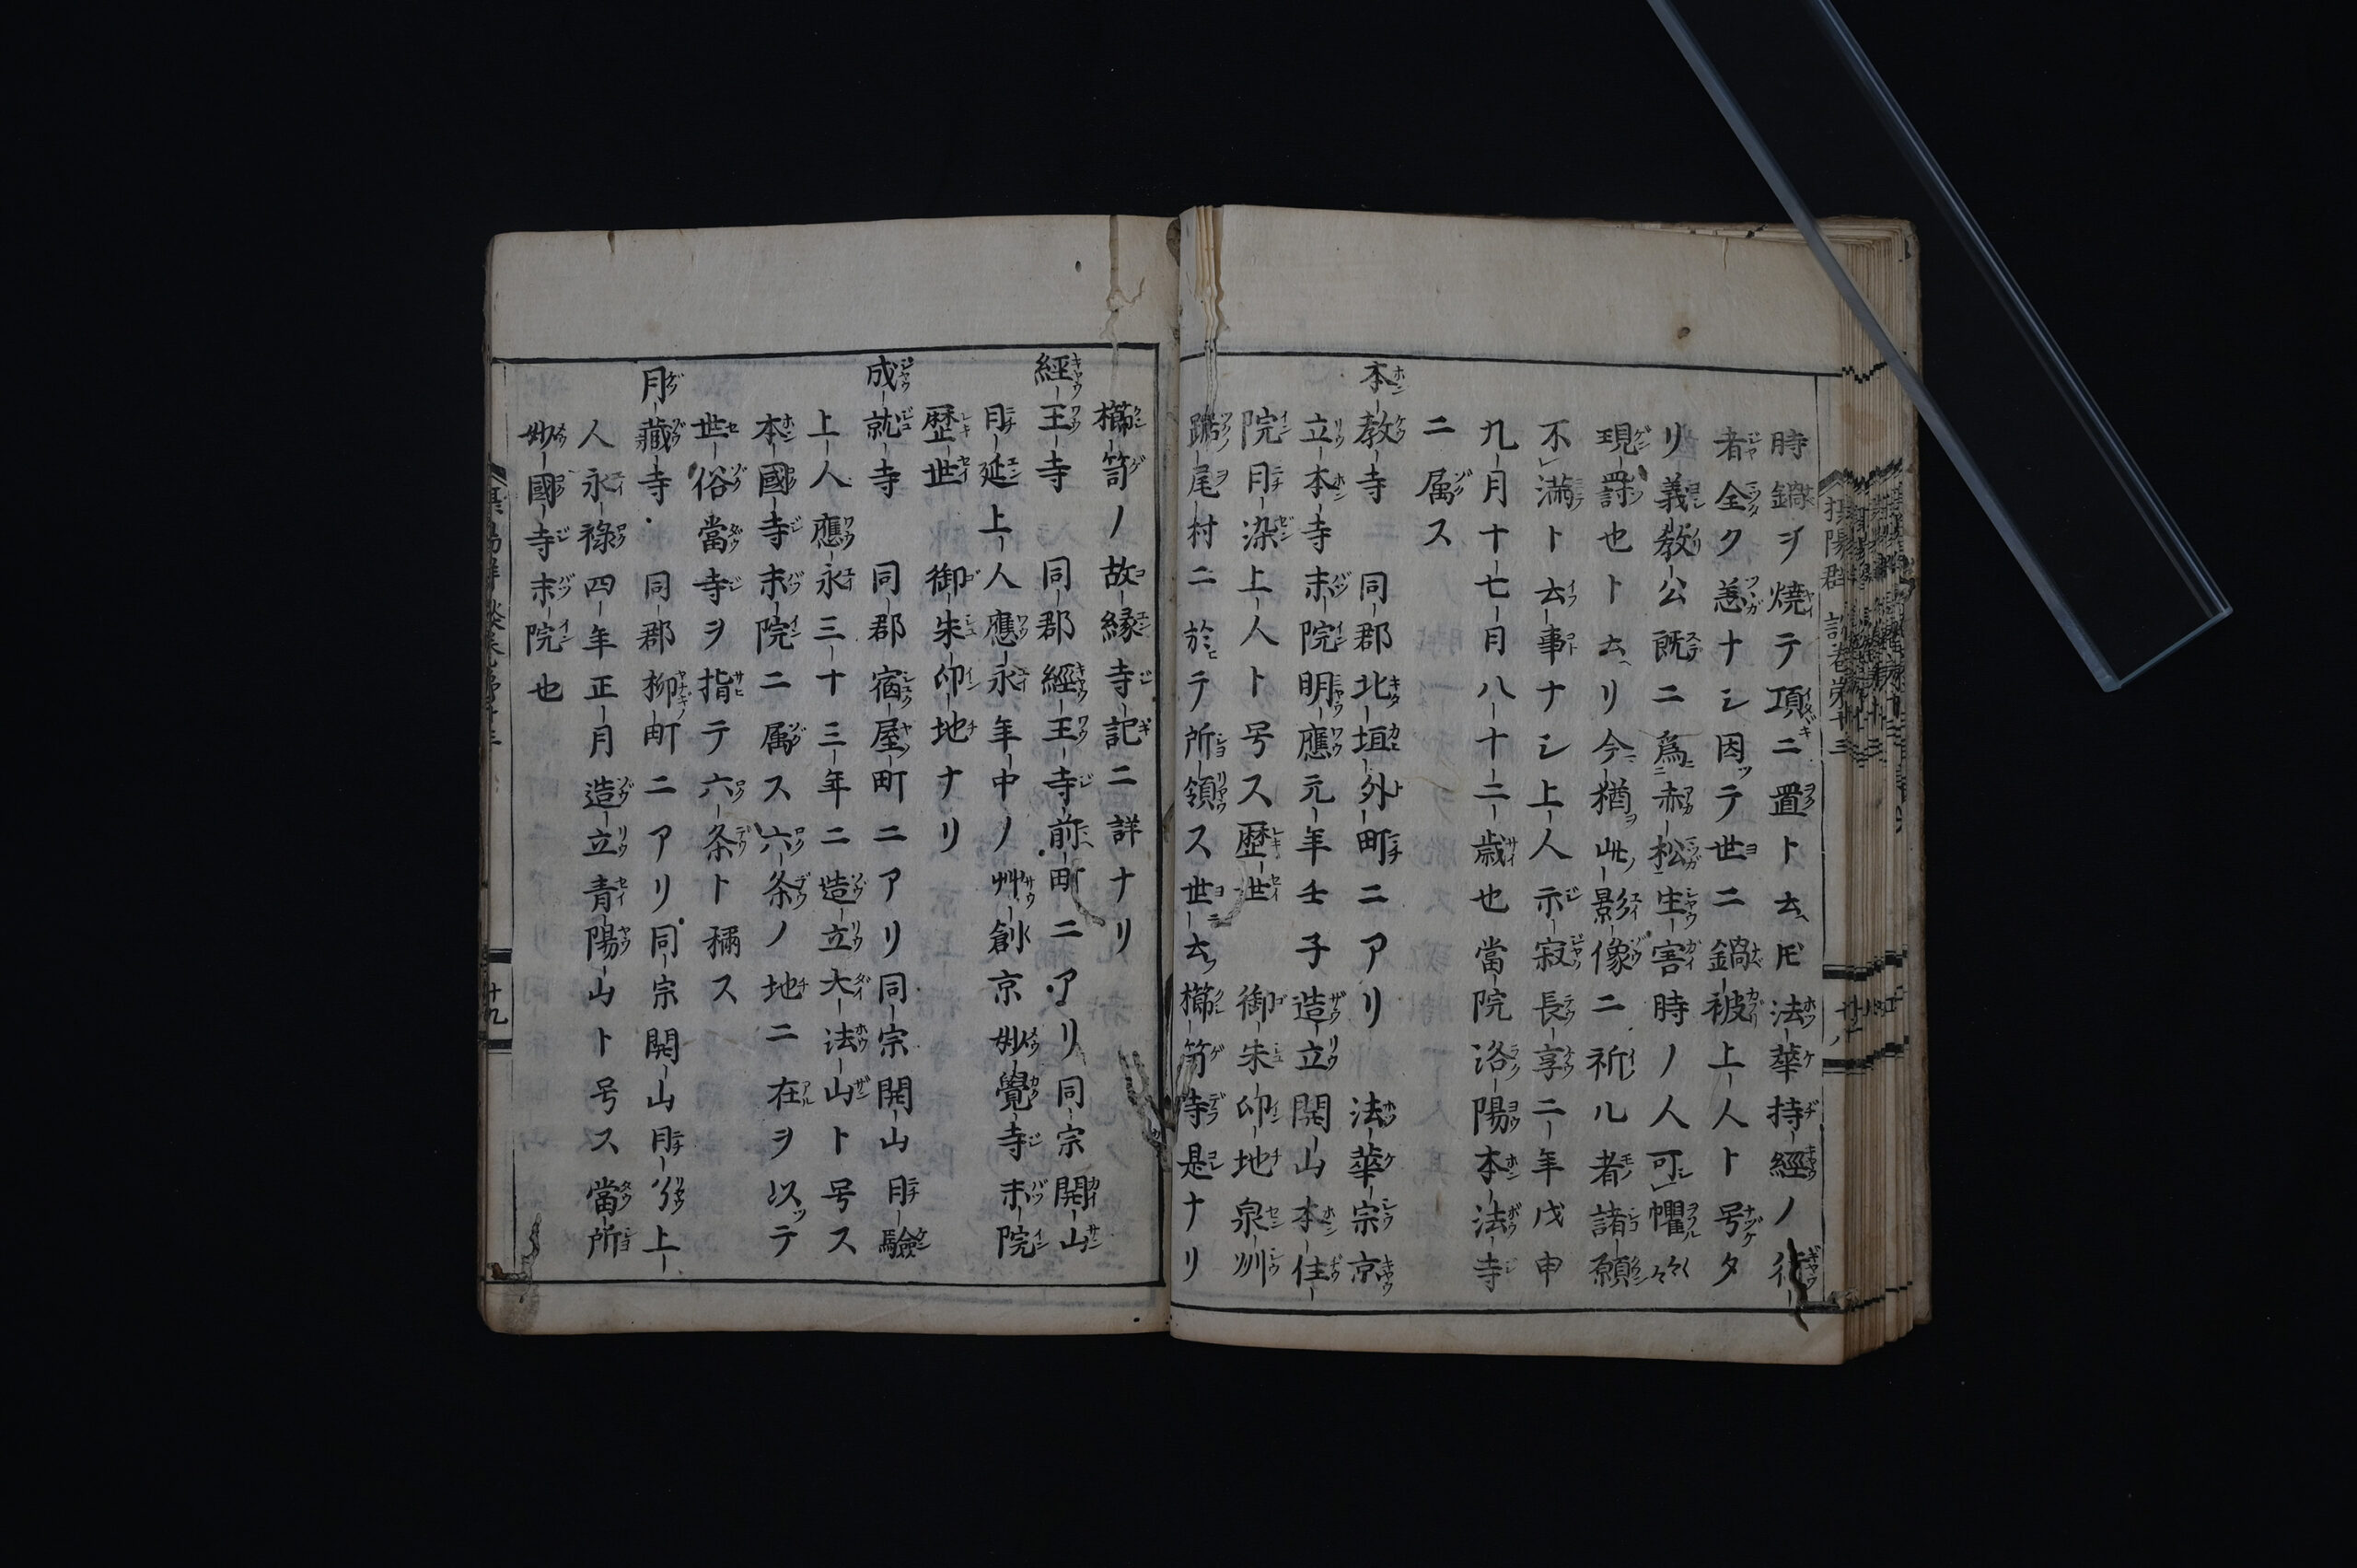 時鍋ヲ焼テ頂ニ置ト云𪜈法華持經ノ行
者全ク恙ナシ因テ世ニ鍋被上人ト号タ
リ義教公既ニ為赤松生害時ノ人可懼々々
現罸也ト云リ今猶此影像ニ祈ル者諸願
不満ト云事ナシ上人示寂長享二年戊申
九月十七日八十二歳也當院洛陽本法寺
ニ属ス
本教寺 同郡北垣外町ニアリ 法華宗京
立本寺末院明應元年壬子造立開山本住
院日染上人ト号ス歴世 御朱印地泉州
踞尾村ニ於テ所領ス世云櫛笥寺是ナリ
櫛笥ノ故縁寺記ニ詳ナリ
經王寺 同郡經王寺前町ニアリ同宗開山
日延上人應永年中ノ艸創京妙覺寺末院
歴世 御朱印地ナリ
成就寺 同郡宿屋町ニアリ同宗開山日驗
上人應永三十三年ニ造立大法山ト号ス
本國寺末院ニ属ス六条ノ地ニ在ヲ以テ
世俗當寺ヲ指テ六条ト稱ス
月藏寺 同郡柳町ニアリ同宗開山日了上
人永禄四年正月造立青陽山ト号ス當所
妙國寺末院也
十九